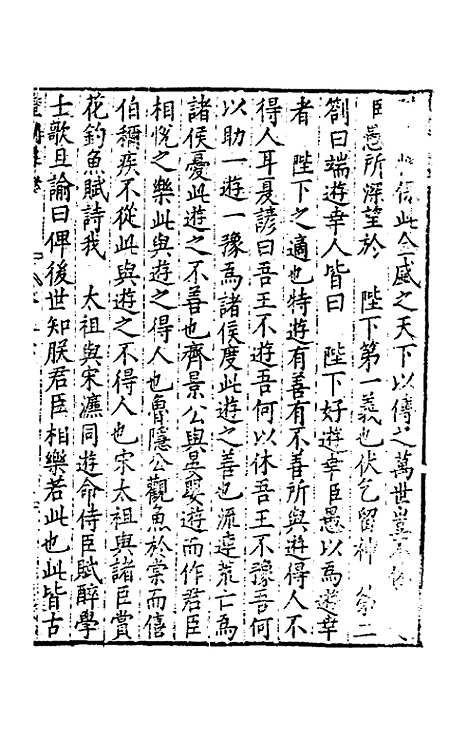 信此金甌之天下以傳之萬世豈
臣愚所深望於　陛下第一義也伏乞留神　第二
劄曰端遊幸人皆曰　陛下好遊幸臣愚以為遊幸
者　陛下之適也特遊有善有不善所與遊得人不
得人耳夏諺曰吾王不遊吾何以休吾王不豫吾何
以助一遊一豫為諸侯度此遊之善也流連荒亡為
諸侯憂此遊之不善也齊景公與晏嬰遊而作君臣
相悅之樂此與遊之得人也魯隱公觀魚於棠而僖
伯稱疾不從此與遊之不得人也宋太祖與諸臣賞
花釣魚賦詩我　太祖與宋濂同遊命侍臣賦醉學
士歌且諭曰俾後世知朕君臣相樂若此也此皆古